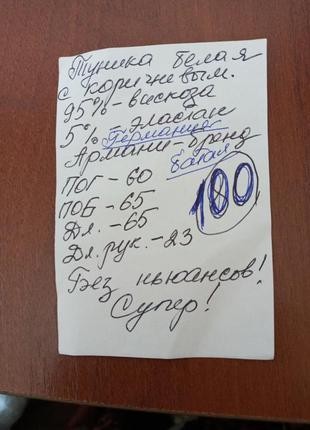 Туника белая
с коричневым.
95% - вискоза
5% - эластан
Германия
Армани - бранд
батал
ПОГ - 60
100
ПОБ - 65
Дл. - 65
Дл. рук. - 23
Без ньюансов!
Супер!